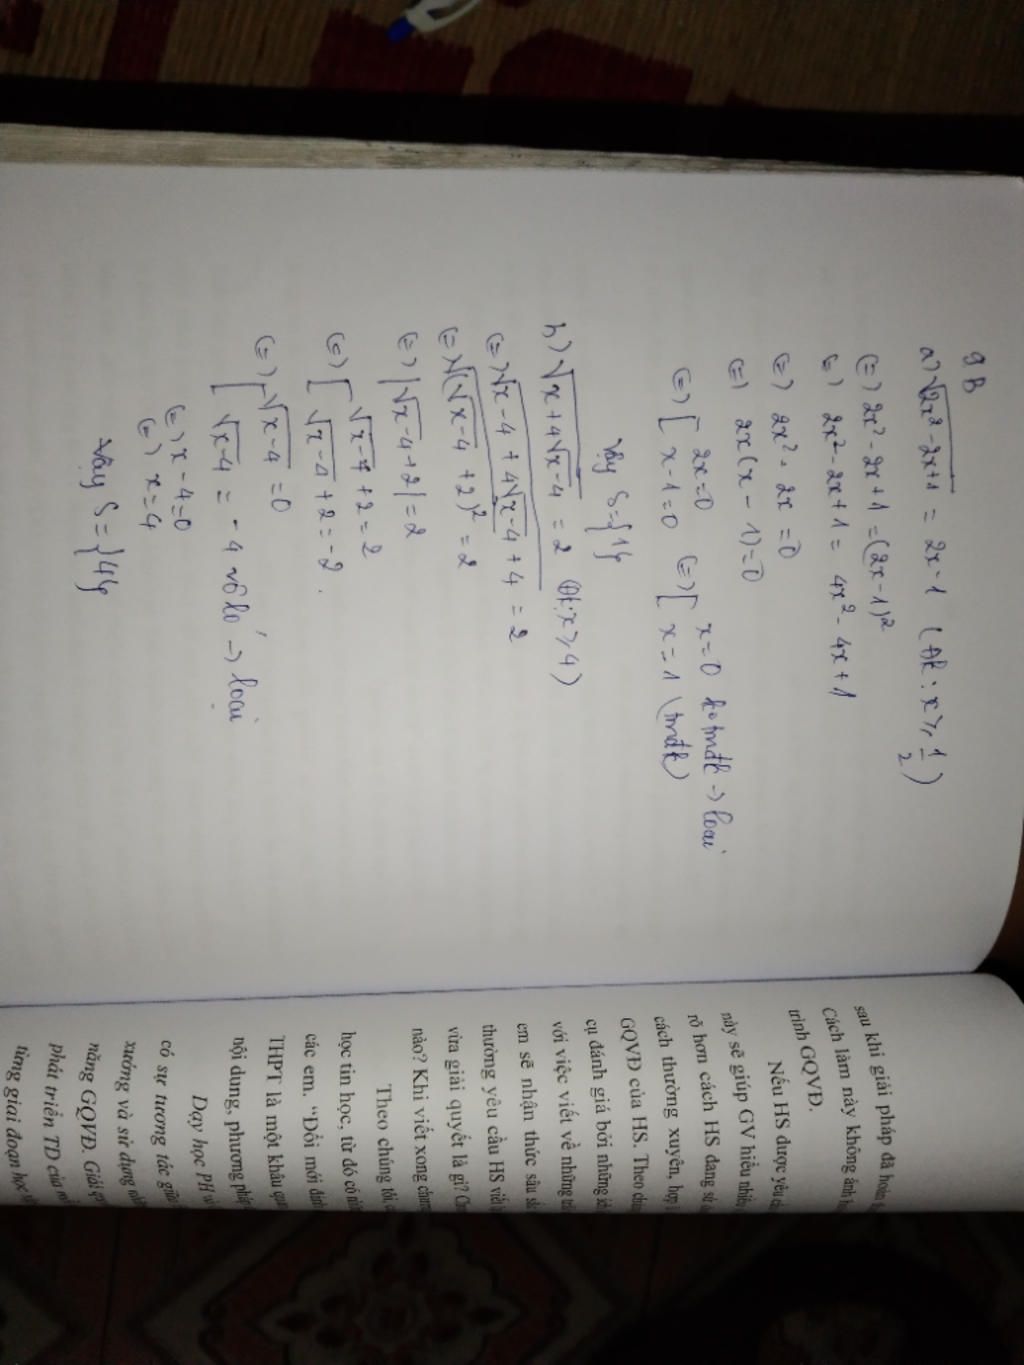 9B
a) √2x² - 2x + 1 = 2x - 1 (Đk: x ≥ 1/2)
(=) 2x² - 2x + 1 = (2x - 1)²
(=) 2x² - 2x + 1 = 4x² - 4x + 1
(=) 2x² - 2x = 0
(=) 2x (x - 1) = 0
(=) [ 2x = 0 (=) [ x = 0 ko tmđk -> loại
x - 1 = 0 x = 1 (tmđk)
Vậy S = {1}
b) √x + 4√x-4 = 2 (Đk: x ≥ 4)
(=) √x - 4 + 4√x-4 + 4 = 2
(=) √(√x-4 + 2)² = 2
(=) |√x-4 + 2| = 2
(=) [ √x-4 + 2 = 2
√x-4 + 2 = -2.
(=) [ √x-4 = 0
√x-4 = -4 vô lí -> loại
(=) x - 4 = 0
(=) x = 4
Vậy S = {4}
sau khi giải pháp đã hoàn
Cách làm này không ảnh
trình GQVĐ.
Nếu HS được yêu
này sẽ giúp GV hiểu nhiều
rõ hơn cách HS đang sử
cách thường xuyên, hợp
GQVĐ của HS. Theo
cụ đánh giá bởi những
với việc viết về những
em sẽ nhận thức sâu
thường yêu cầu HS viết
vừa giải quyết là gì?
nào? Khi viết xong
Theo chúng tôi,
học tin học, từ đó có
các em. "Đổi mới đánh
THPT là một khâu
nội dung, phương pháp
Dạy học PH
có sự tương tác giữa
xướng và sử dụng
năng GQVĐ. Giải
phát triển TD của
từng giai đoạn học